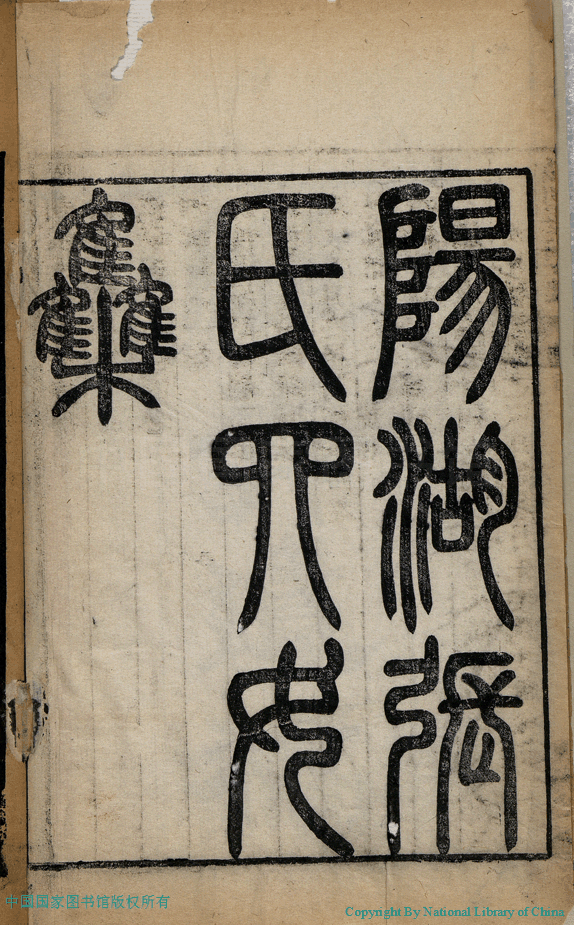 陽湖張
氏四女
雧
中国国家图书馆版权所有
Copyright By National Library of China